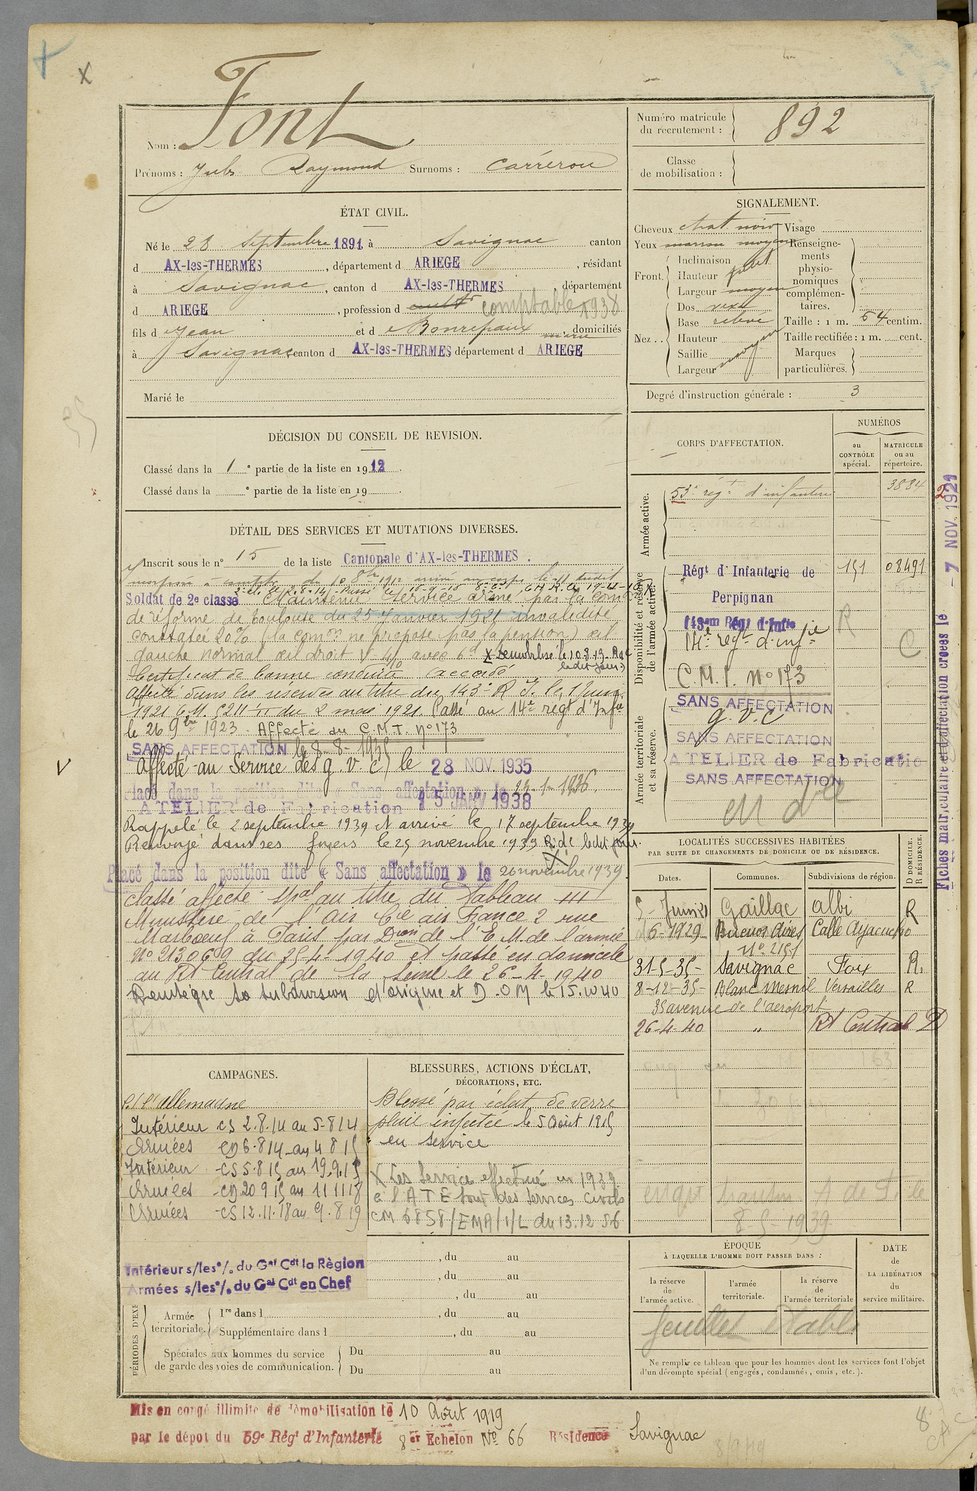 Nom : Font
Prénoms : Jules Raymond Surnoms : Carrérou
Numéro matricule du recrutement : 892
Classe de mobilisation :
ÉTAT CIVIL.
Né le 28 Septembre 1891 à Savignac canton
d AX-les-THERMES, département d ARIEGE, résidant
à Savignac, canton d AX-les-THERMES département
d ARIEGE, profession d cult comptable 1938
fils d Jean et d Bonrepaux, domiciliés
à Savignac canton d AX-les-THERMES département d ARIEGE
Marié le
SIGNALEMENT.
Cheveux chat noir Visage
Yeux marron moyen Renseigne-
ments
physio-
nomiques
complémen-
taires.
Front. Inclinaison
Hauteur petit
Largeur moyen
Nez.. Dos
Base relevé
Hauteur
Saillie
Largeur moyen
Taille : 1 m. 54 centim.
Taille rectifiée : 1 m. cent.
Marques
particulières.
Degré d'instruction générale : 3
DÉCISION DU CONSEIL DE REVISION.
Classé dans la 1e partie de la liste en 1912.
Classé dans la e partie de la liste en 19 .
DÉTAIL DES SERVICES ET MUTATIONS DIVERSES.
Inscrit sous le n° 15 de la liste Cantonale d'AX-les-THERMES.
Soldat de 2e classe
Maintenu Service armé par la Com
de réforme de Toulouse du 25 Janvier 1921 invalidité
constatée 20% (la comon ne propose pas la pension) œil
gauche normal œil droit
Certificat de bonne conduite accordé
Affecté dans les réserves au titre du 143e R.I. le 1 Juin
1921 C.M. 5211 du 2 mai 1921. Passé au 14e régt d'Infie
le 26 9bre 1923. Affecté au C.M.I. n° 173
SANS AFFECTATION le 8-8-
Affecté au Service des g.v.c. le 28 NOV. 1935
Placé dans la position dite « Sans affectation » le
ATELIER de Fabrication 15 JANV 1938
Rappelé le 2 septembre 1939 et arrivé le 17 septembre 1939
Renvoyé dans ses foyers le 25 novembre 1939
Placé dans la position dite « Sans affectation » le 26 novembre 1939.
classé affecté spal au titre du Tableau III
Ministère de l'air Cie air France 2 rue
Marbœuf à Paris par Dion de l'E.M. de l'armée
N° 21306 9 du 25-4-1940 et passé en domicile
au Rt Central de la Seine le 26-4-1940
Réintègre sa subdivision d'origine et D.O.M le 15.10.40
CORPS D'AFFECTATION.
NUMÉROS
au CONTRÔLE spécial.
MATRICULE ou au répertoire.
Armée active.
53e régt d'infanterie 3834
Disponibilité et réserve de l'armée active.
Régt d'Infanterie de Perpignan 151 08491
143e Rég d'Infie
14e régt d'infie R C
C.M.I. N° 173
Armée territoriale et sa réserve.
SANS AFFECTATION
g.v.c
SANS AFFECTATION
ATELIER de Fabricatio
SANS AFFECTATION
Fiches matriculaire et d'affectation créées le 7 NOV. 1929
LOCALITÉS SUCCESSIVES HABITÉES
PAR SUITE DE CHANGEMENTS DE DOMICILE OU DE RÉSIDENCE.
Dates. Communes. Subdivisions de région. D DOMICILE. R RÉSIDENCE.
Gaillac Albi R
6-1929 Buenos Aires Calle Ayacucho
N° 2151
31-5-35 Savignac Foix R.
8-12-35 Blanc Mesnil Versailles R
35 avenue de l'aéroport
26-4-40 " Rt Central D
CAMPAGNES.
c/ l'Allemagne
Intérieur CS 2.8.14 au 5-8 14
Armées CD 6-8 14 au 4 8 15
Intérieur CS 5.8 15 au 19.9.15
Armées CD 20 9 15 au 11 11 18
Armées CS 12.11.18 au 9.8.19
Intérieur s/les °/. du Gal Cdt la Région
Armées s/les °/. du Gal Cdt en Chef
BLESSURES, ACTIONS D'ÉCLAT,
DÉCORATIONS, ETC.
Blessé par éclat de verre
plaie infectée le 5 août 1915
en service
X Les Services effectués en 1939
à l'A T E sont des services civils
CM 6858/EMA/1/L du 13.12.56
, du au
, du au
, du au
Armée territoriale. 1re dans l , du au
Supplémentaire dans l , du au
Spéciales aux hommes du service
de garde des voies de communication.
Du au
Du au
ÉPOQUE
À LAQUELLE L'HOMME DOIT PASSER DANS :
la réserve de l'armée active.
l'armée territoriale.
la réserve de l'armée territoriale
DATE DE LA LIBÉRATION du service militaire.
feuillet établi
Ne remplir ce tableau que pour les hommes dont les services font l'objet
d'un décompte spécial (engagés, condamnés, omis, etc.).
Mis en congé illimité de démobilisation le 10 Août 1919
par le dépot du 59e Régt d'Infanterie 8e Echelon N° 66 Résidence Savignac